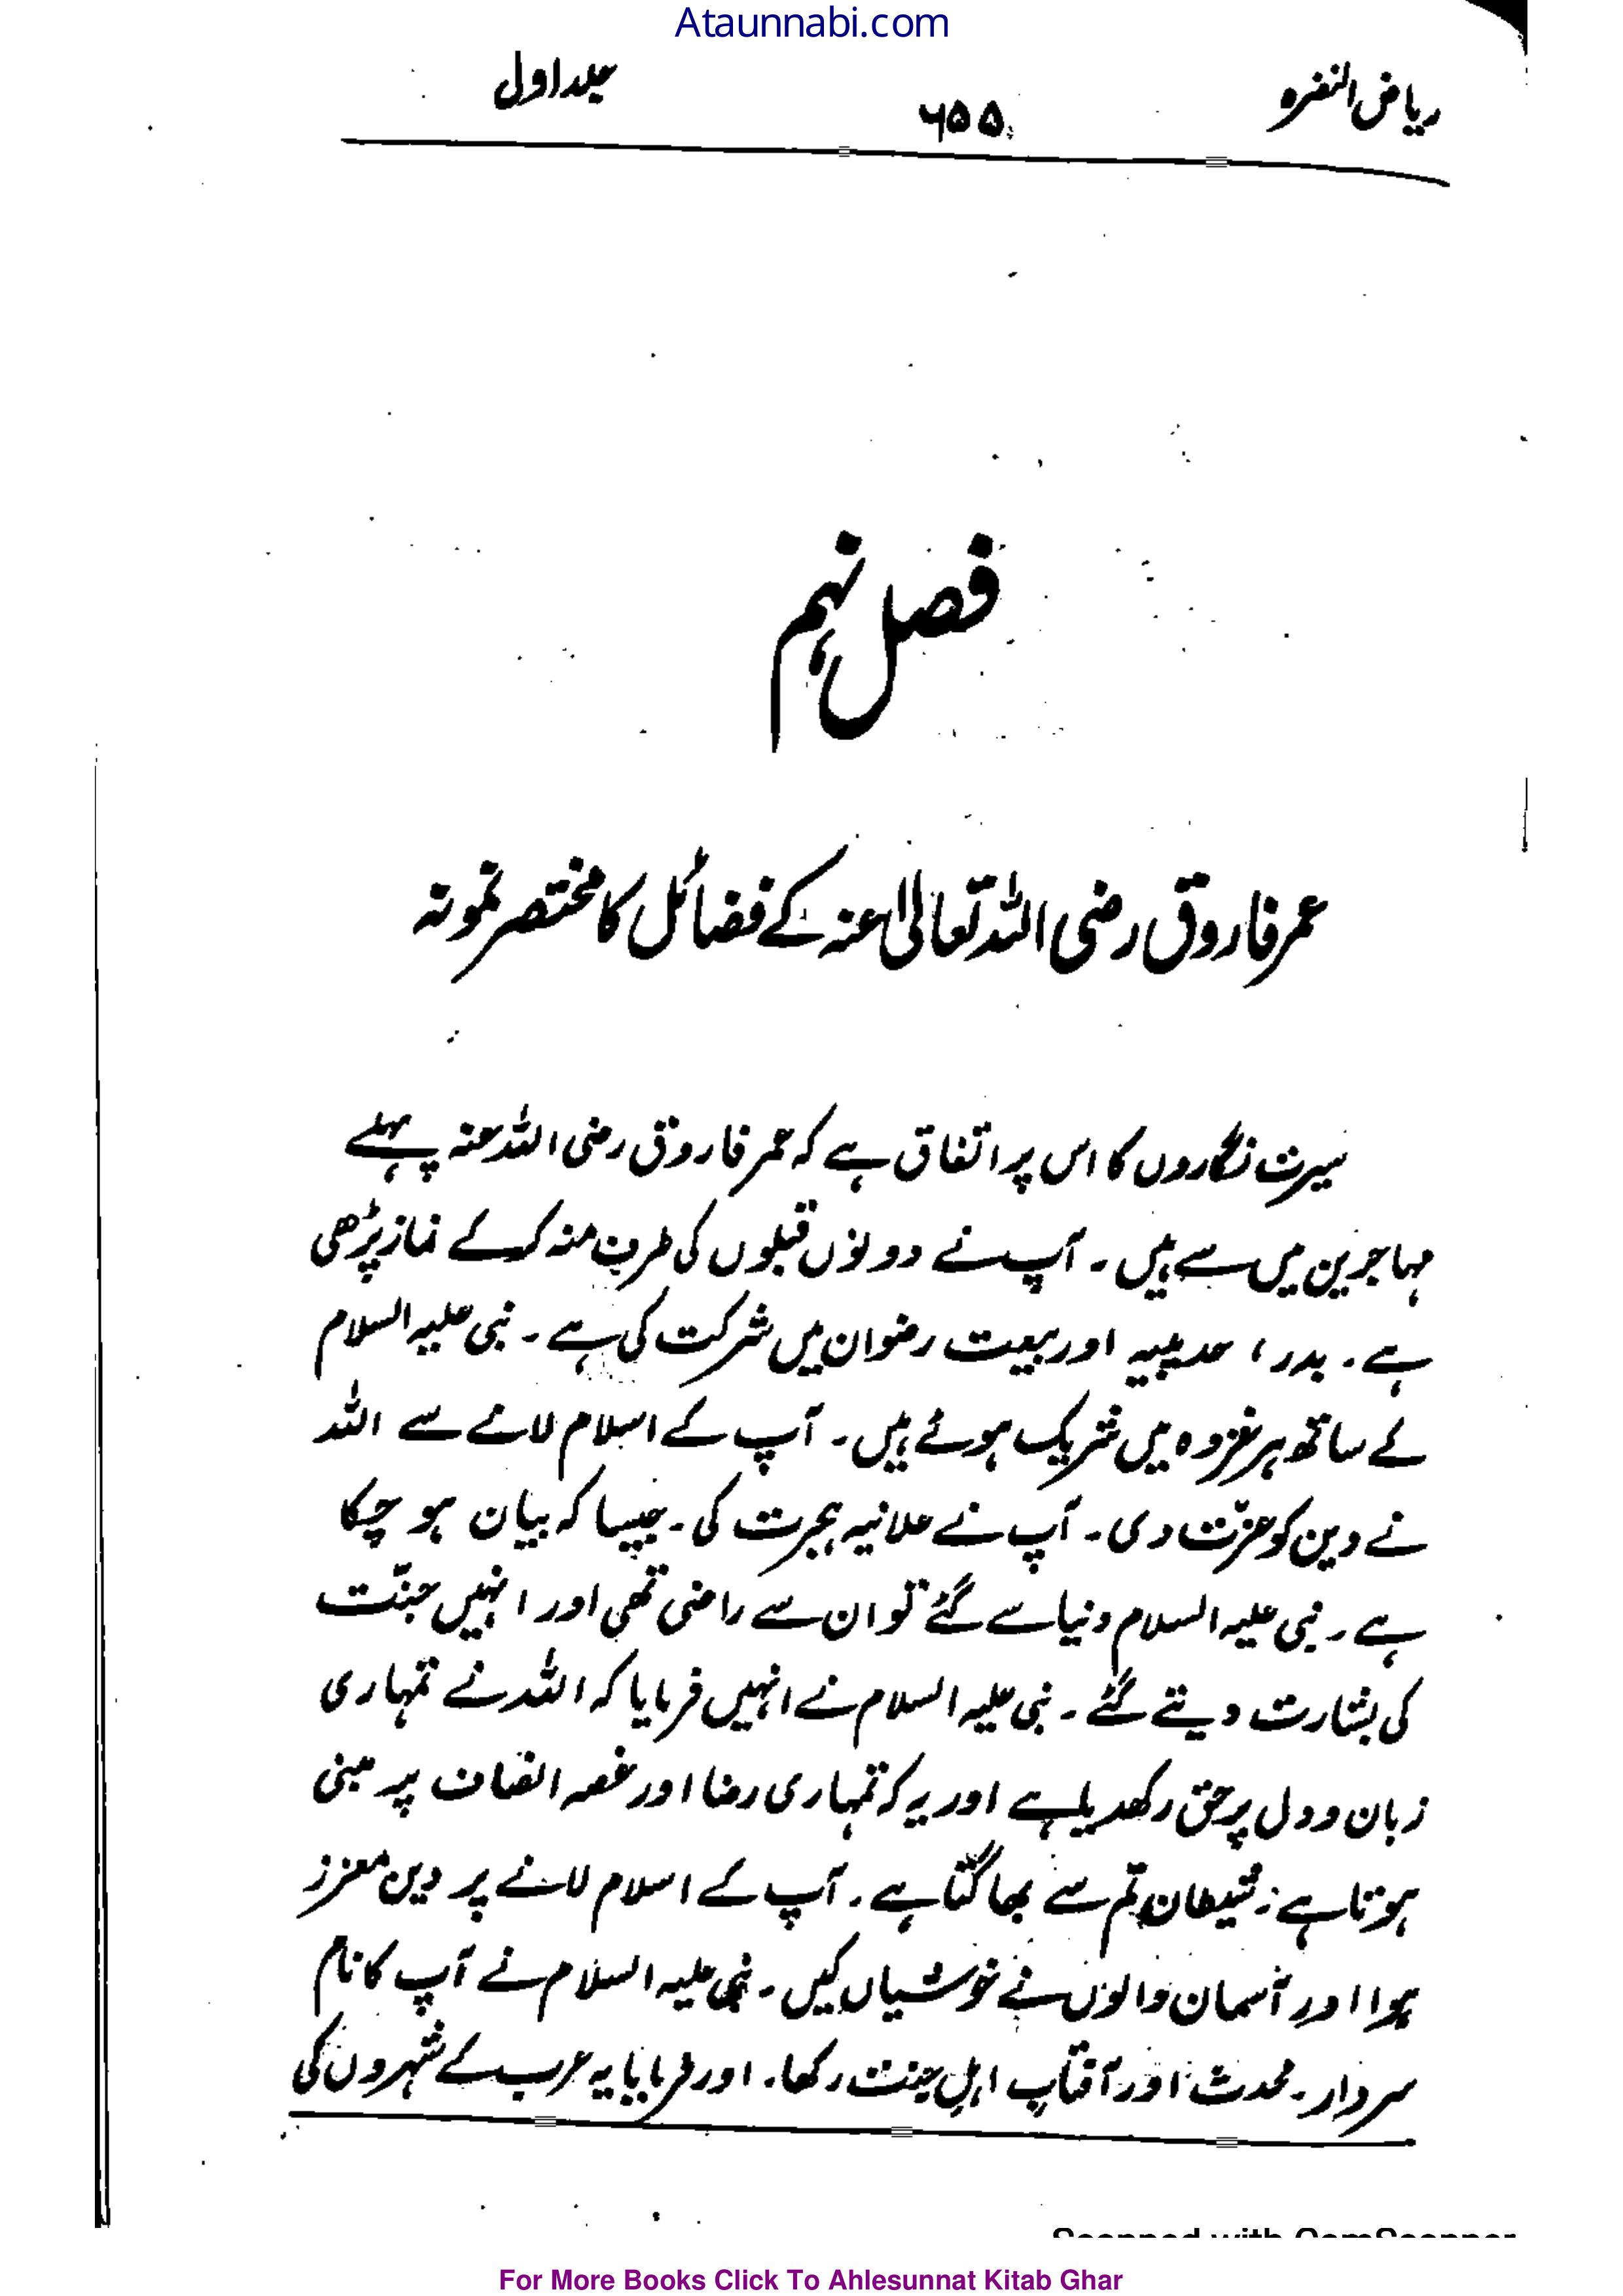 Ataunnabi.com
ریاض النضرہ ۶۵۵ جلد اول
فصل نہم
عمر فاروق رضی اللہ تعالیٰ عنہ کے فضائل کا مختصر نمونہ
سیرت نگاروں کا اس پر اتفاق ہے کہ عمر فاروق رضی اللہ عنہ پہلے
مہاجرین میں سے ہیں ۔ آپ نے دونوں قبلوں کی طرف منہ کر کے نماز پڑھی
ہے ۔ بدر ، حدیبیہ اور بیعت رضوان میں شرکت کی ہے ۔ نبی علیہ السلام
کے ساتھ ہر غزوہ میں شریک ہوئے ہیں ۔ آپ کے اسلام لانے سے اللہ
نے دین کو عزّت دی ۔ آپ نے علانیہ ہجرت کی ۔ جیسا کہ بیان ہو چکا
ہے ۔ نبی علیہ السلام دنیا سے گئے تو ان سے راضی تھی اور انہیں جنّت
کی بشارت دیتے گئے ۔ نبی علیہ السلام نے انہیں فرمایا کہ اللہ نے تمہاری
زبان و دل پر حق رکھدیا ہے اور یہ کہ تمہاری رضا اور غصہ انصاف پر مبنی
ہوتا ہے ۔ شیطان تم سے بھاگتا ہے ۔ آپ کے اسلام لانے پر دین معزز
ہوا اور آسمان والوں نے خوشیاں کیں ۔ نبی علیہ السلام نے آپ کا نام
سردار ۔ محدث اور آفتاب اہل جنت رکھا ۔ اور فرمایا یہ عرب کے شہروں کی
Scanned with CamScanner
For More Books Click To Ahlesunnat Kitab Ghar